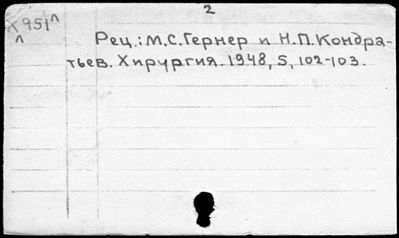 2
^951^
Рец.: М.С.Гернер и Н.П.Кондра-
тьев. Хирургия. 1948, 5, 102-103.